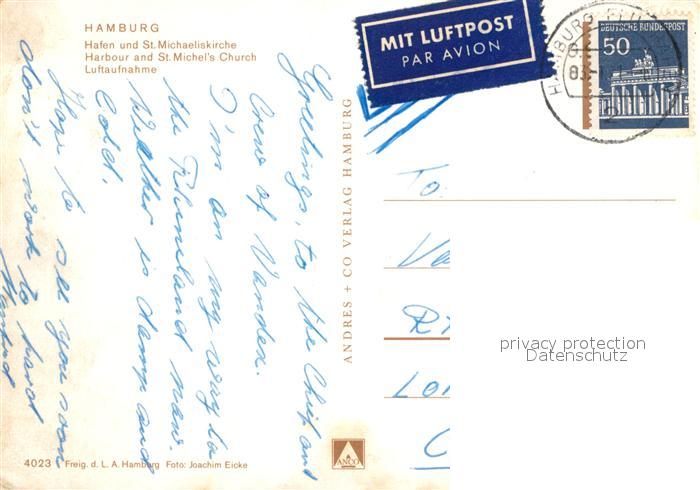 HAMBURG
Hafen und St. Michaeliskirche
Harbour and St. Michel's Church
Luftaufnahme
MIT LUFTPOST
PAR AVION
HAMBURG
DEUTSCHE BUNDESPOST
50
Greetings, to the Chief and
Crew of Vandex.
I'm on my way to
the now.
Weather is damp and
Cold.
Hope to see you soon
don't work to hard
ANDRES + CO VERLAG HAMBURG
To.
privacy protection
Datenschutz
ANCO
4023 Freig. d. L. A. Hamburg Foto: Joachim Eicke